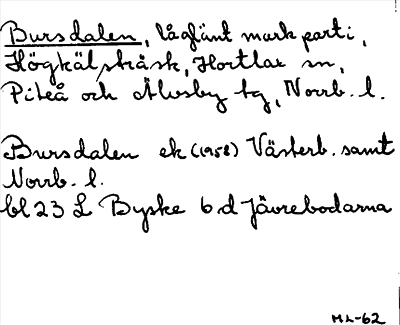 Bursdalen, låglänt mark parti,
Högkälsträsk, Hortlax sn,
Piteå och Älvsby tg, Norrb. l.
Bursdalen ek (1958) Västerb. samt
Norrb. l.
bl 23 L Byske 6 d Jävrebodarna
ML-62